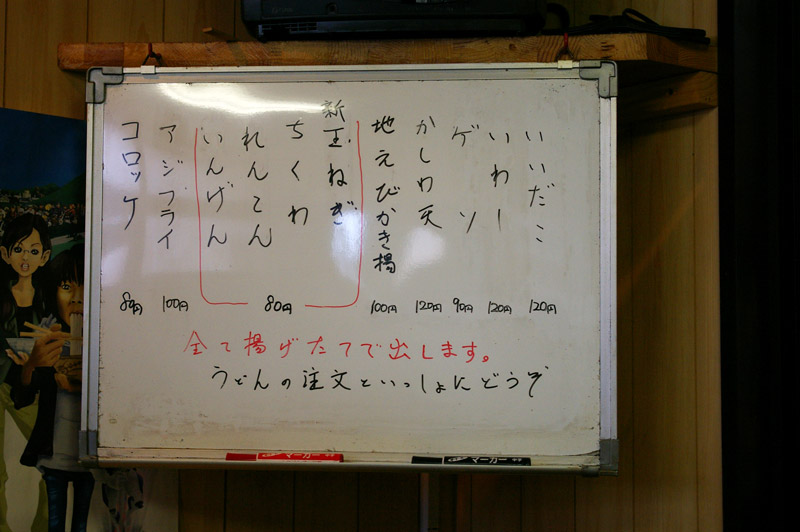 いいだこ 120円
いわし 120円
ゲソ 90円
かしわ天 120円
地えびかき揚 100円
新玉ねぎ
ちくわ
れんこん
いんげん
80円
アジフライ 100円
コロッケ 80円
全て揚げたてで出します。
うどんの注文といっしょにどうぞ
マーカー
マーカー